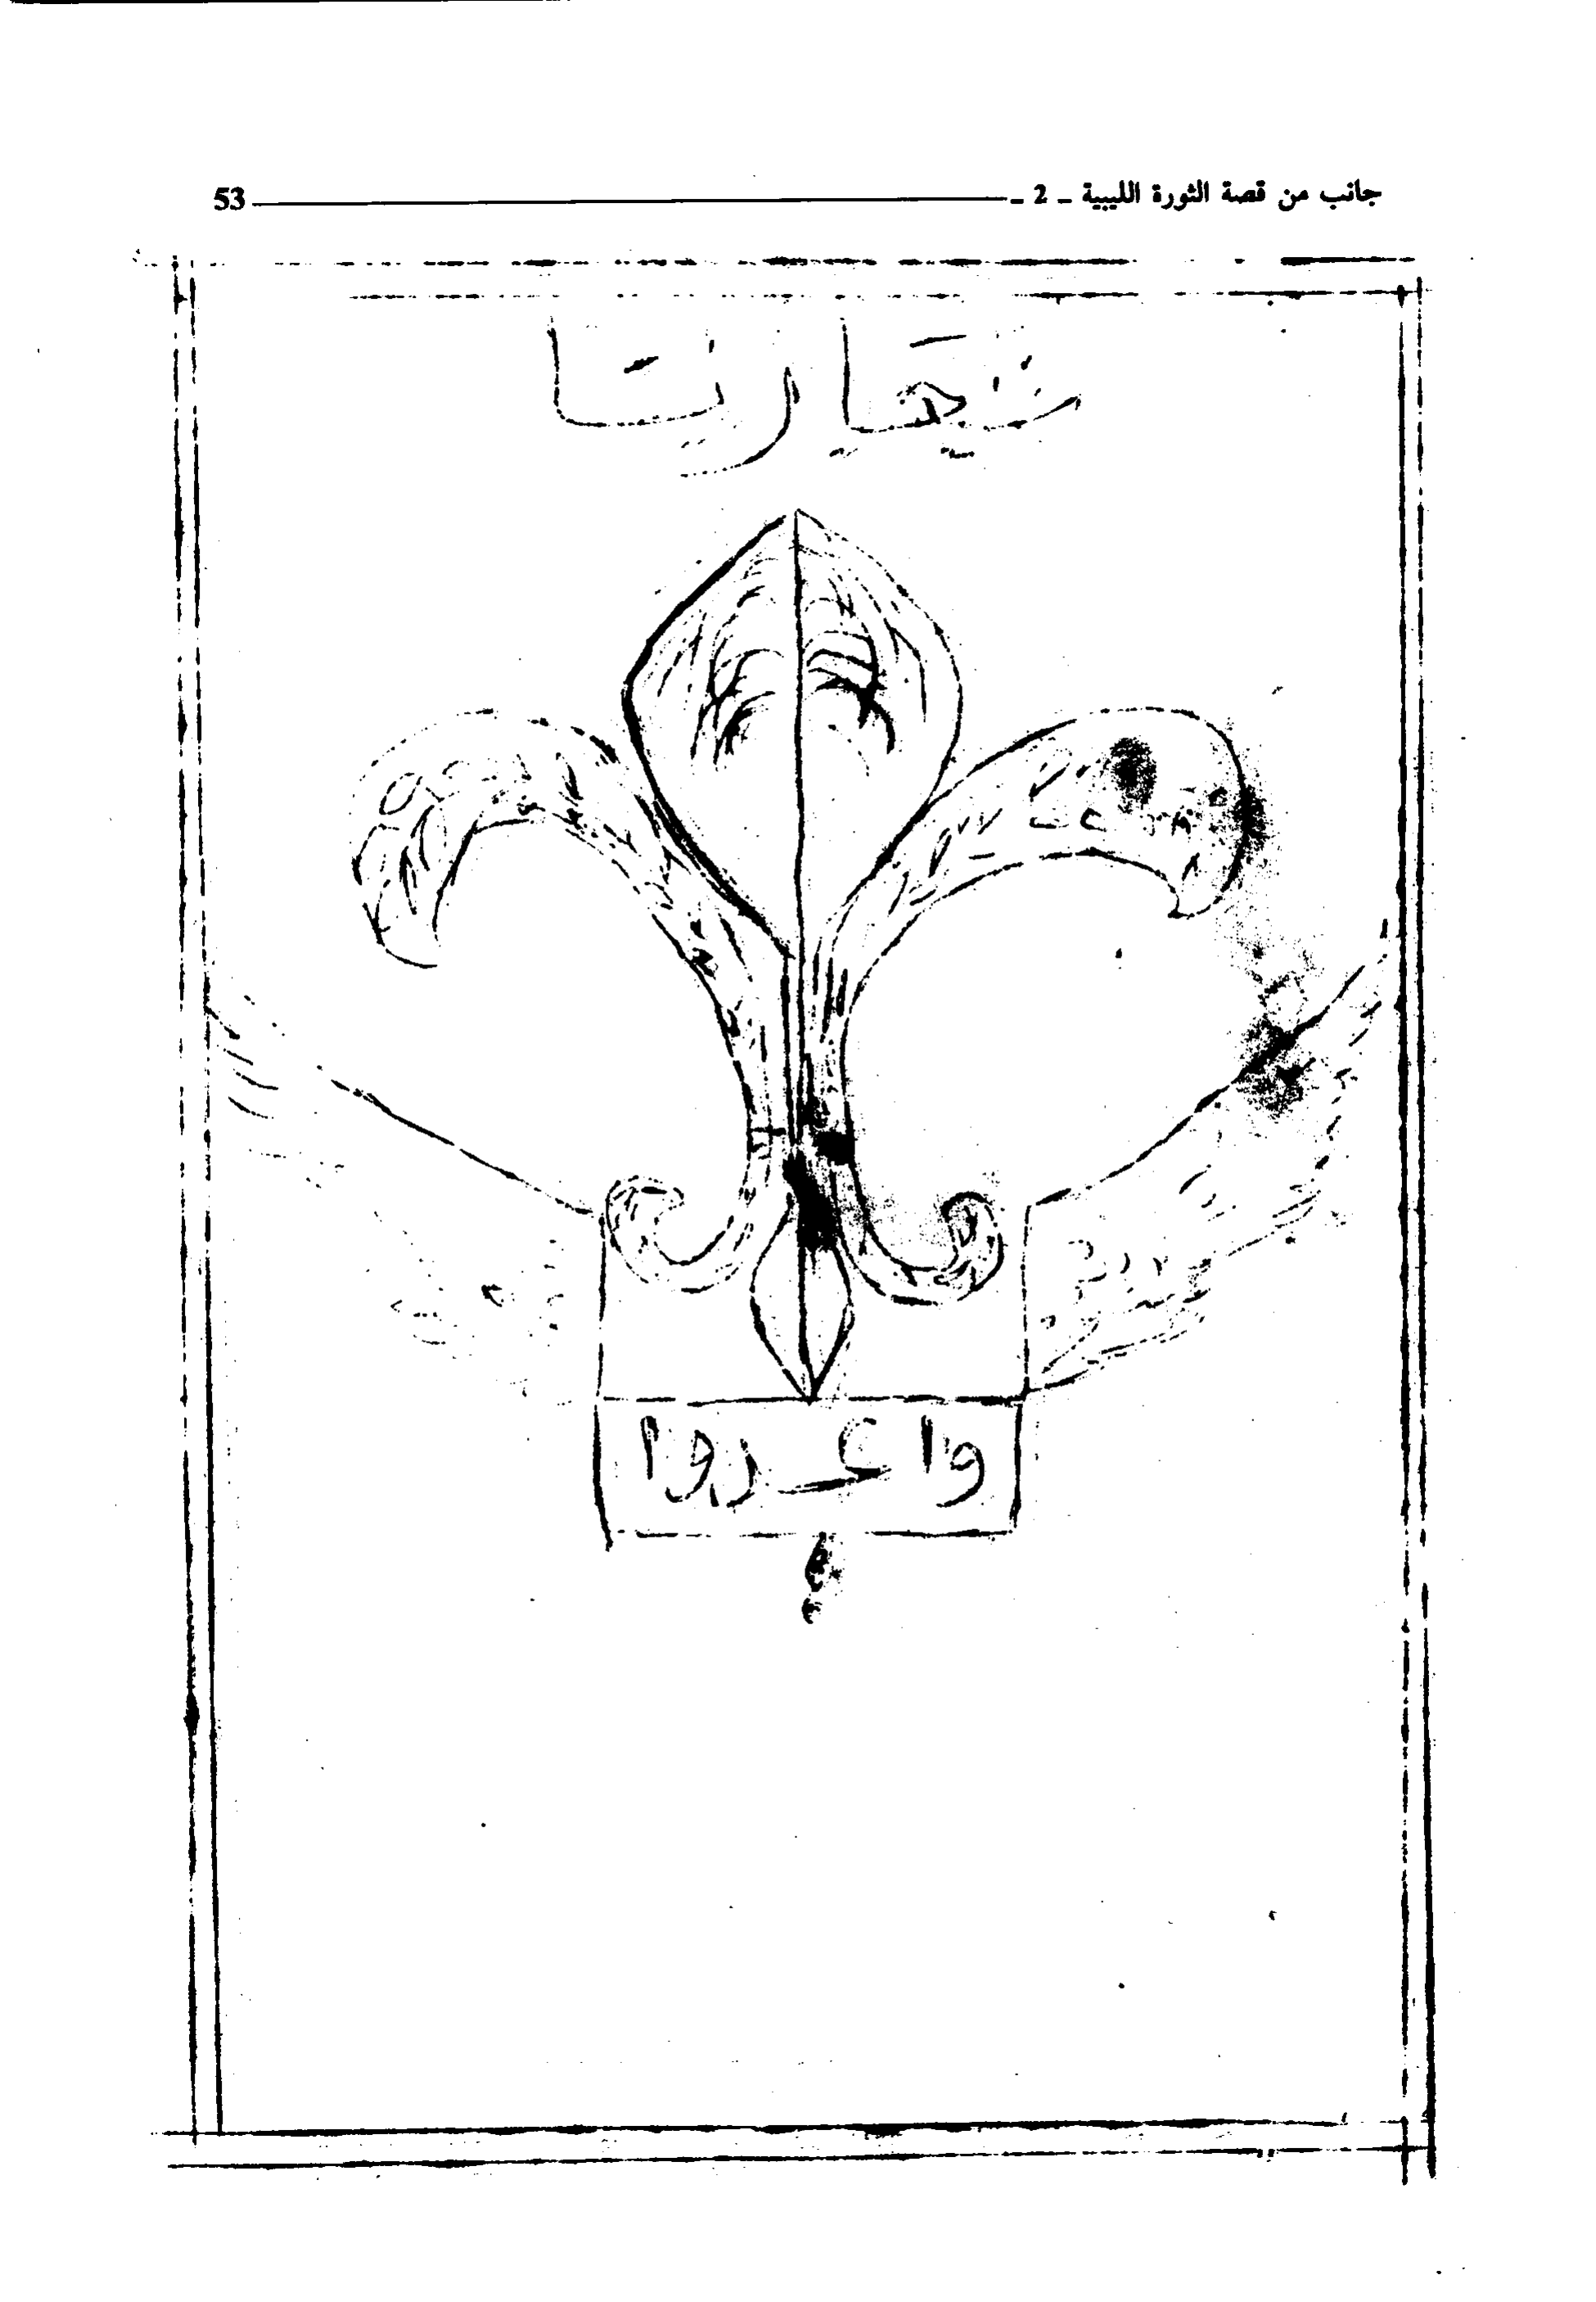 جانب من قصة الثورة الليبية ـ 2 ـ 53
شعارنا
واعدوا